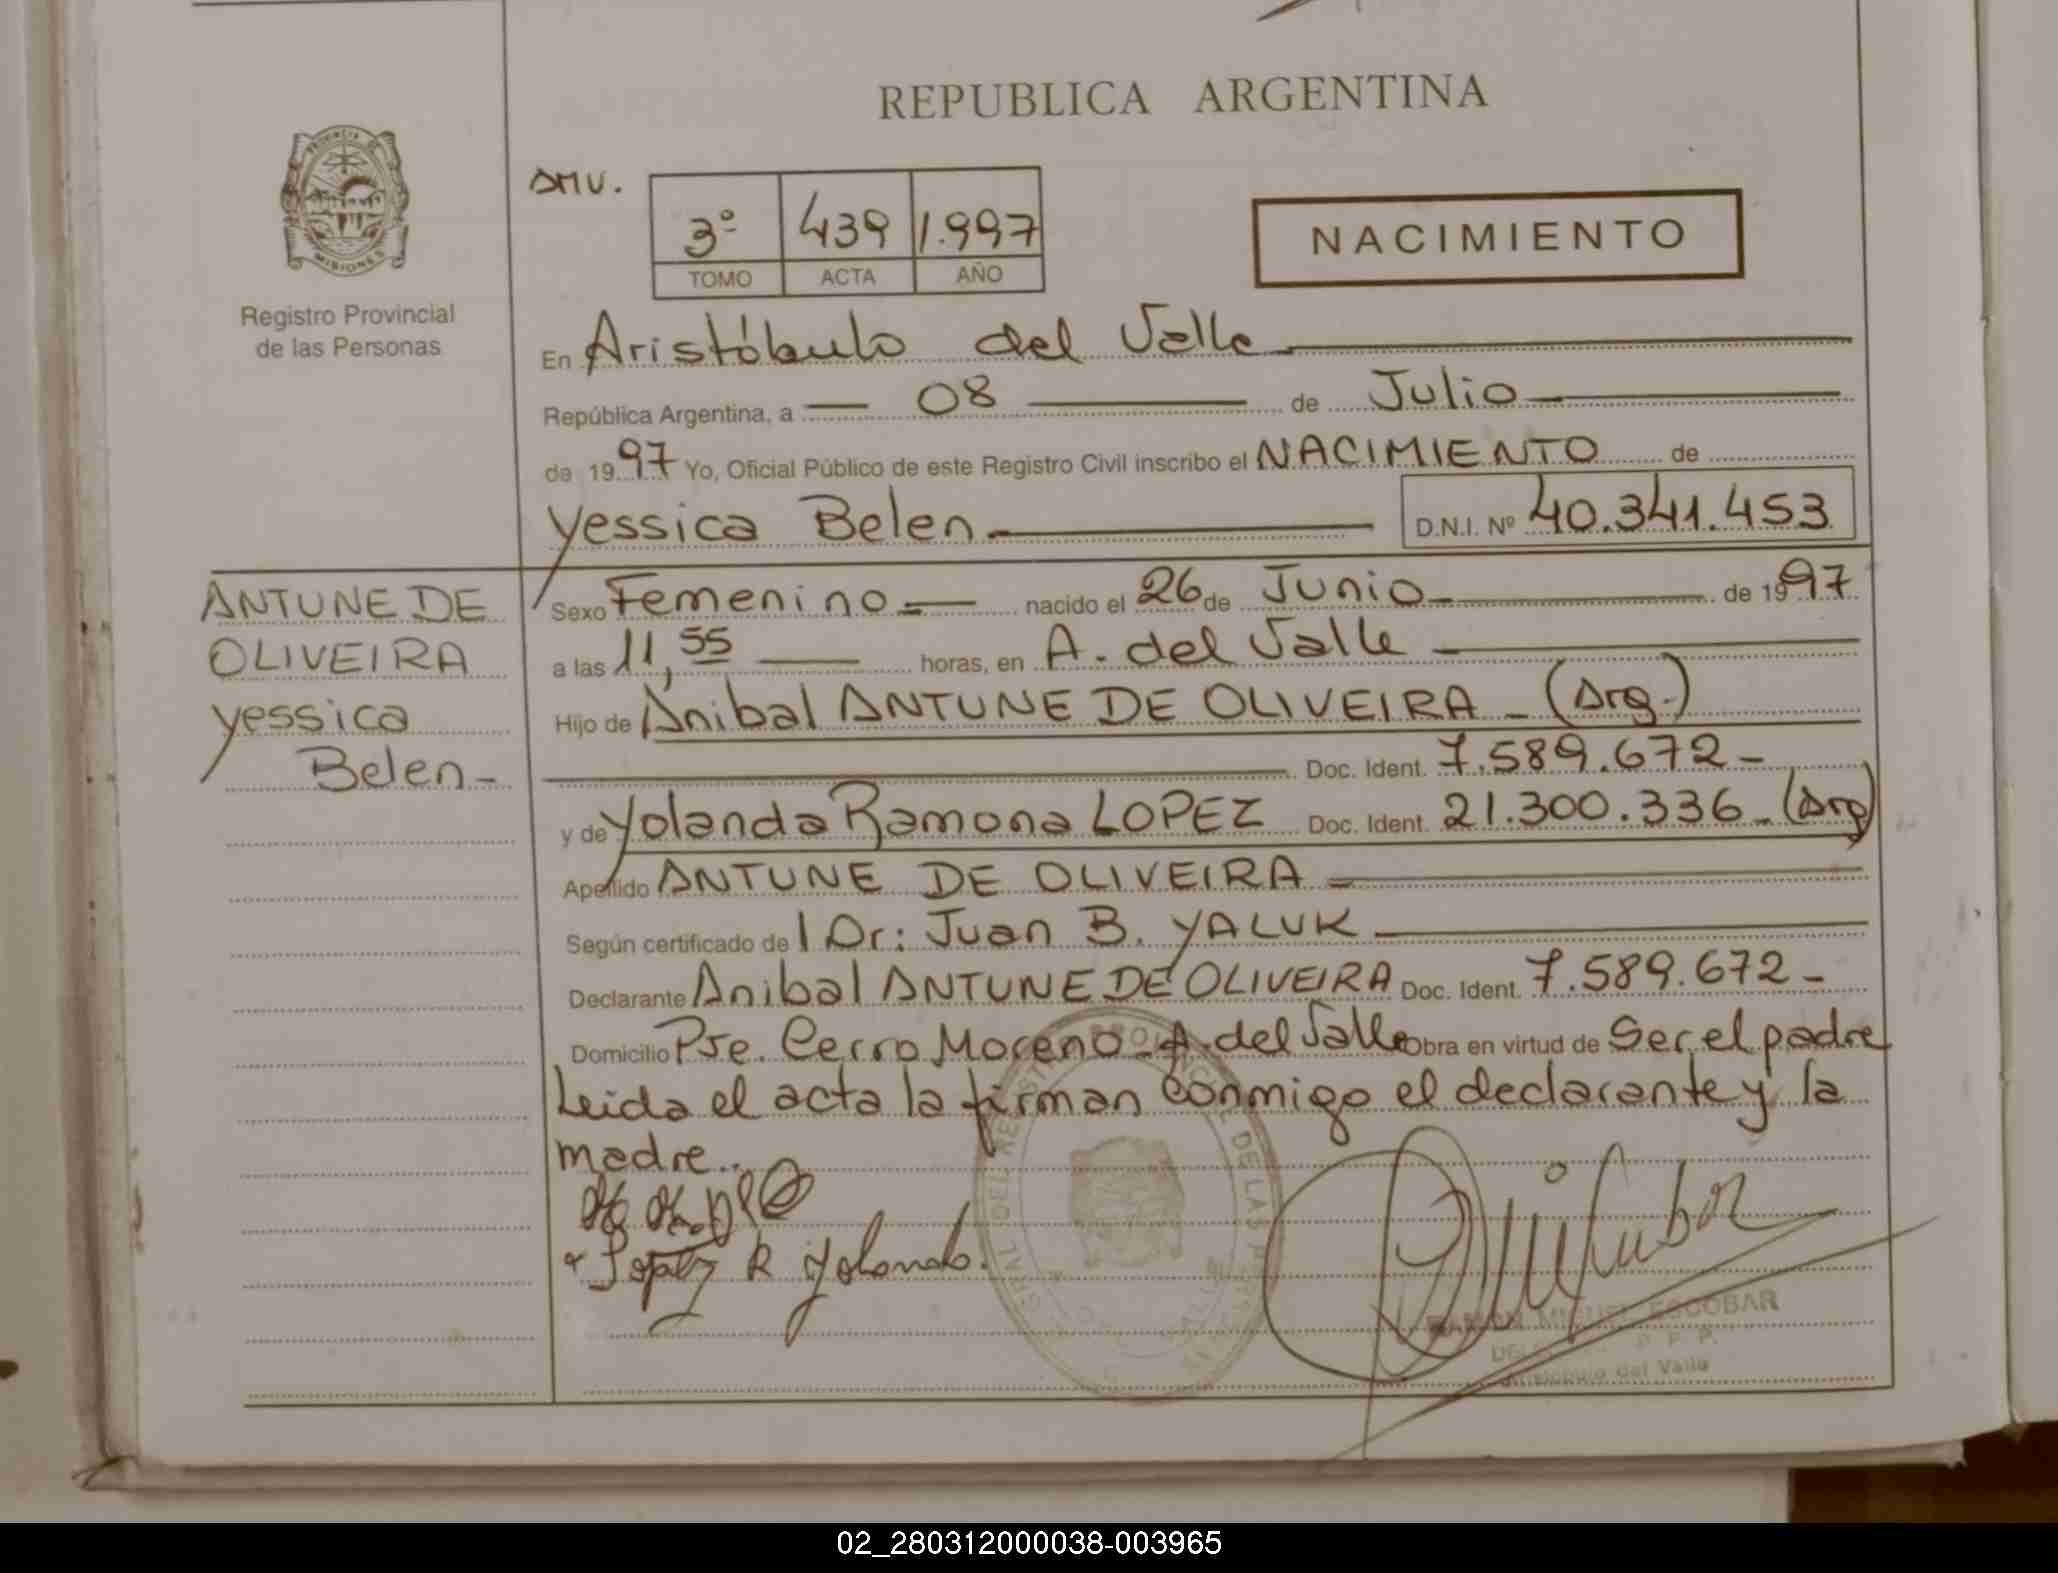 REPUBLICA ARGENTINA
PROVINCIA DE
MISIONES
Registro Provincial
de las Personas
AMV.
3º 439 1.997
TOMO ACTA AÑO
NACIMIENTO
En Aristóbulo del Valle
República Argentina, a 08 de Julio
de 1997 Yo, Oficial Público de este Registro Civil inscribo el NACIMIENTO de
Yessica Belen D.N.I. Nº 40.341.453
ANTUNE DE
OLIVEIRA
Yessica
Belen-
Sexo Femenino nacido el 26 de Junio de 1997
a las 11,55 horas, en A. del Valle
Hijo de Anibal ANTUNE DE OLIVEIRA - (Arg.)
Doc. Ident. 7.589.672-
y de Yolanda Ramona LOPEZ Doc. Ident. 21.300.336-(Arg)
Apellido ANTUNE DE OLIVEIRA
Según certificado del Dr: Juan B. YALUK
Declarante Anibal ANTUNE DE OLIVEIRA Doc. Ident. 7.589.672-
Domicilio Pje. Cerro Moreno - A. del Valle Obra en virtud de Ser el padre
Leida el acta la firman conmigo el declarante y la
madre..
Lopez R Yolanda.
RAMON MIGUEL ESCOBAR
Aristobulo del Valle
02_280312000038-003965